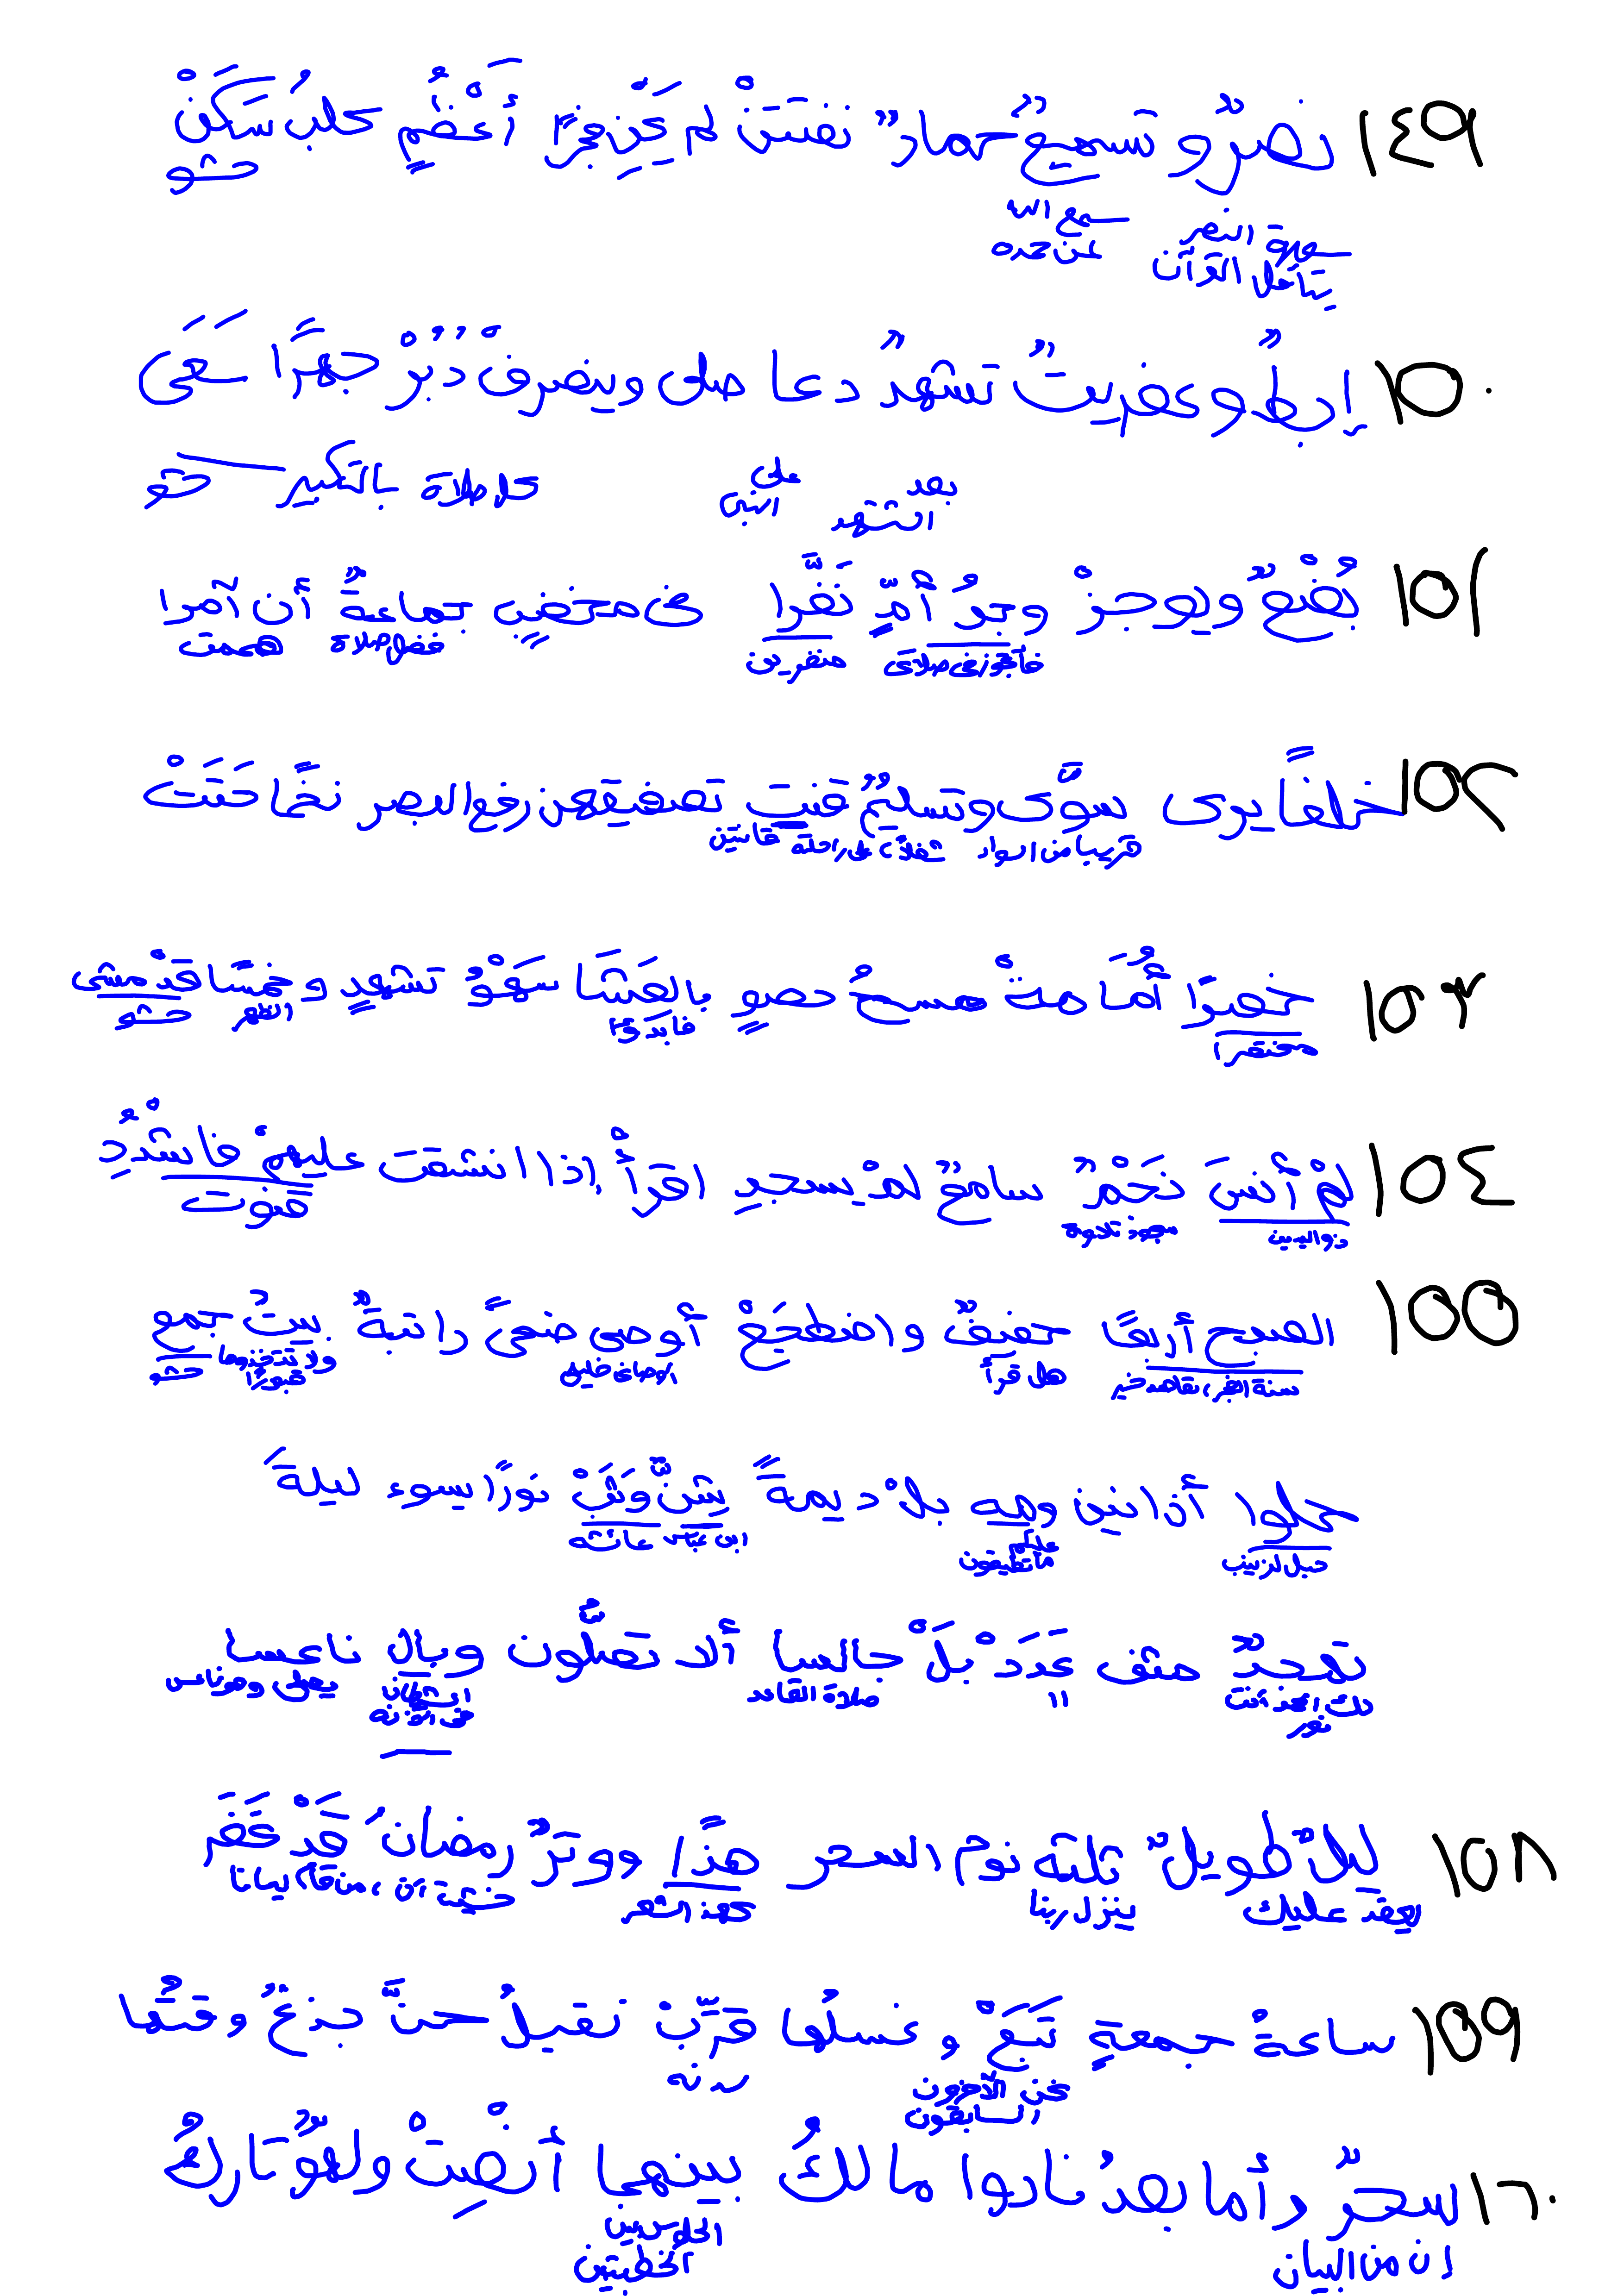 ١٤٩ نصرٌ وتسميعٌ حمادٌ نفتتنْ لم أعظُمٍ كلبُ سَكَنْ
حشو
سورة النصر سمع الله
يتأول القرآن عن حمده
١٥٠ إربطٌ وعفريتٌ تشهدٌ دعا صلى وينصرفْ دُبُرْ جهرًا سَعَى
بعد على كل صلاة بالتكبير حشو
التشهد النبي
١٥١ يُقْنعٌ ويوجزْ وجدُ أمٍّ نَفَّرا في مخضبٍ جماعةٌ أن آمرا
فأتجوز في صلاتي منفرين فضل صلاة هممت
١٥٢ خلفًا يرى سوَّى وتسليمٌ قنت تصفيقهن رفع البصر نخًّا حَتَتْ
قريبا من السواء على راحلة قانتين
١٥٣ خصرًا أُمَامةْ مسحُ حصوٍ بالعَشَا سَهْوُ تشهدٍ وخمسًا قدْ مشى
مختصرا فابدءوا الظهر حشو
١٥٤ لمْ أنسَ نَجْمٌ سامعٌ لمْ يسجدِ اقرأْ إذا انشقت عليهمْ فاشدُدْ
ذو اليدين سجود تلاوة قنوت
١٥٥ الصبح أربعًا خفيفٌ واضطجَعْ أوصى ضحىً راتبةٌ بيتُ جمع
سنة الفجر هل قرأ أوصاني خليلي ولا تتخذوها
قبورًا حشو
حلوا أذانين ومه بلْ ديمةً شنَّ وثَبْ نورًا يسوء ليلةَ
حبل لزينب عليكم ابن عباس عائشة
ما تطيقون
تهجدٌ عَدَدْ بلَ جالسا ألا تصلُّون وبال ناعسا
لك الحمد أنت ١١ صلاة القاعد الشيطان يصلي وهو ناعس
نور في أذنه
١٥٨ ليلٌ طويلٌ ثلثه نوم السحر هذًّا ووترٌ رمضانُ قَدْ غَفَر
يعقد عليك ينزل ربنا كهذ الشعر خشيت أن، من قام إيمانا
١٥٩ ساعةُ جمعةٍ تَبَعْ وغسلُها قرِّبْ نقيلُ حنَّ جزعُ وقتُها
نحن الآخرون بدنه
السابقون
١٦٠ سحرٌ وأما بعدُ نادوا مالكُ بينهما أنْصِتْ ولهوٌ تاركُ
إن من البيان الجلوس بين
الخطبتين